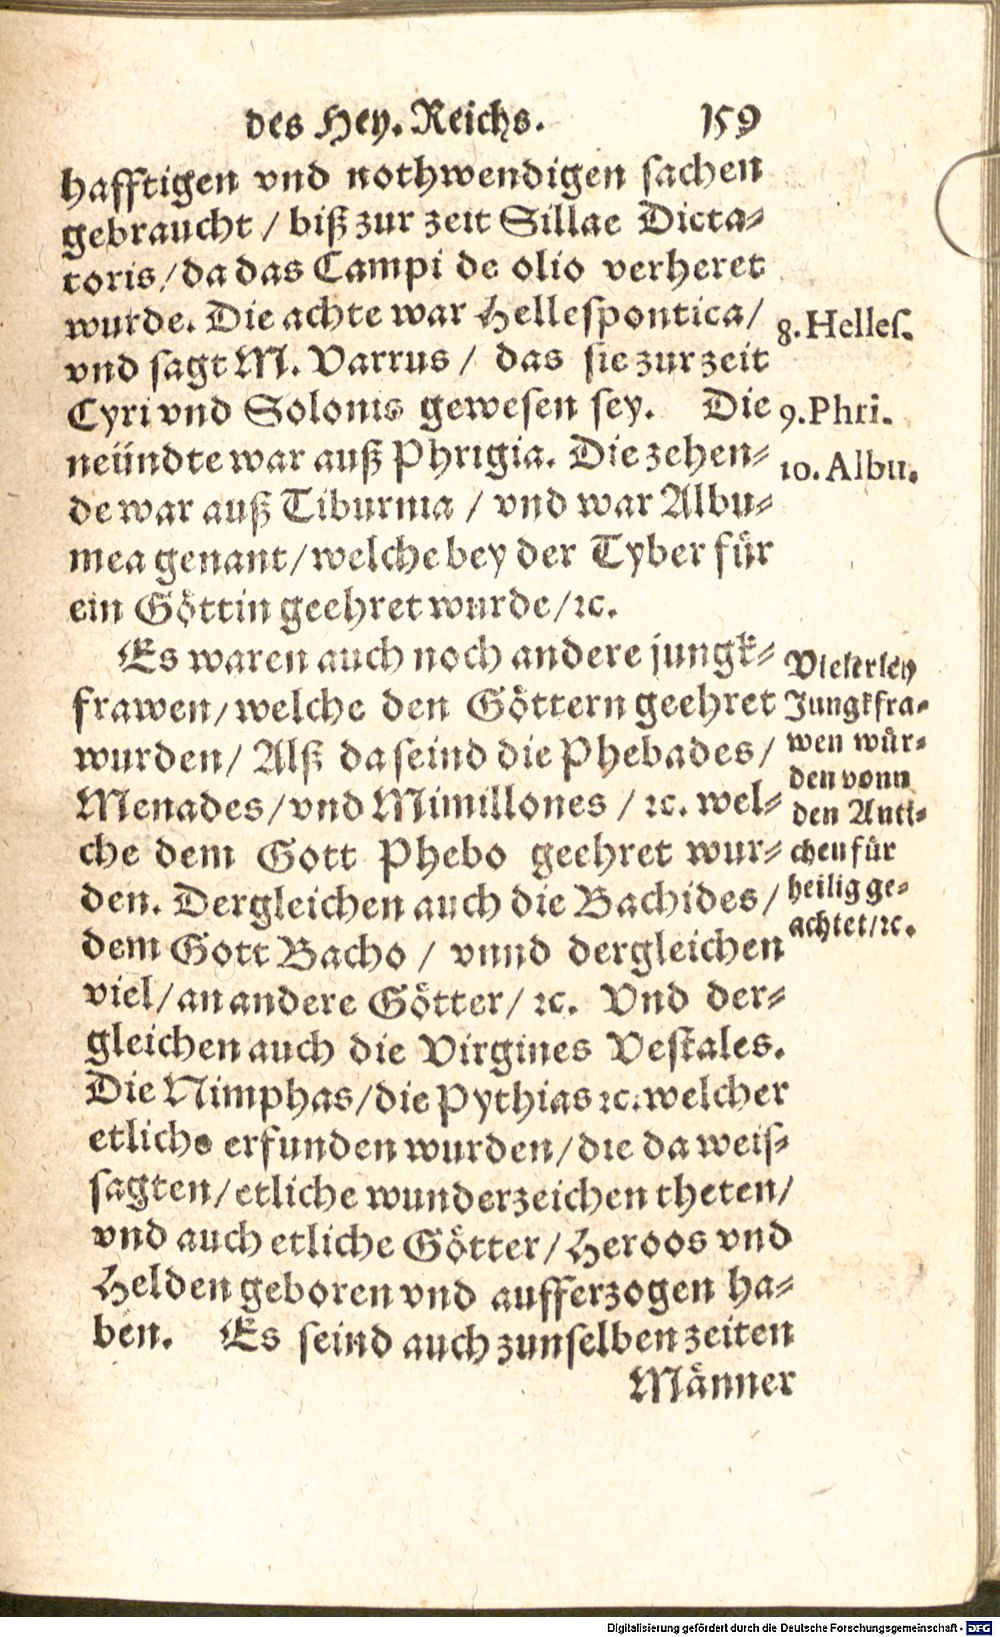 des Hey. Reichs. 159
hafftigen vnd nothwendigen sachen
gebraucht / biß zur zeit Sillae Dicta-
toris / da das Campi de olio verheret
wurde. Die achte war Hellespontica /
8. Helles.
vnd sagt M. Varrus / das sie zur zeit
Cyri vnd Solonis gewesen sey. Die
9. Phri.
neündte war auß Phrigia. Die zehen-
10. Albu.
de war auß Tiburnia / vnd war Albu-
mea genant / welche bey der Tyber für
ein Göttin geehret wurde / ꝛc.
Es waren auch noch andere jungk-
frawen / welche den Göttern geehret
wurden / Alß da seind die Phebades /
Menades / vnd Mimillones / ꝛc. wel-
che dem Gott Phebo geehret wur-
den. Dergleichen auch die Bachides /
dem Gott Bacho / vnnd dergleichen
viel / an andere Götter / ꝛc. Vnd der-
gleichen auch die Virgines Vestales.
Die Nimphas / die Pythias ꝛc. welcher
etliche erfunden wurden / die da weis-
sagten / etliche wunderzeichen theten /
vnd auch etliche Götter / Heroos vnd
Helden geboren vnd aufferzogen ha-
ben. Es seind auch zunselben zeiten
Männer
Vielerley
Jungkfra-
wen wür-
den vonn
den Anti-
chen für
heilig ge-
achtet / ꝛc.
Digitalisierung gefördert durch die Deutsche Forschungsgemeinschaft - DFG